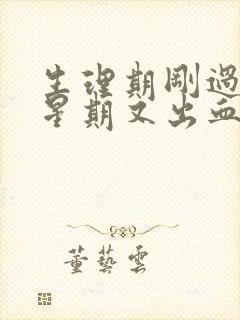 生理期剛過
星期又出血
董藝雲